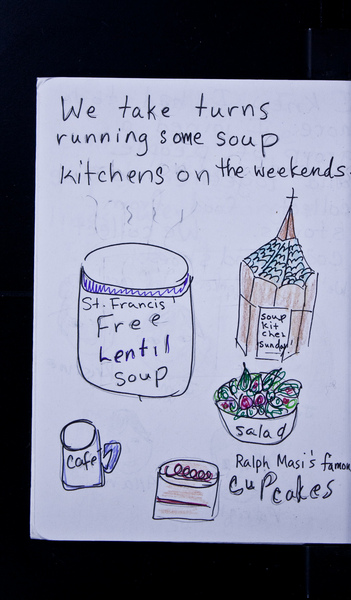 We take turns
running some soup
kitchens on the weekends.
St. Francis
Free
Lentil
soup
soup
kit
chen
Sunday
salad
cafe
Ralph Masi's famou
cupcakes